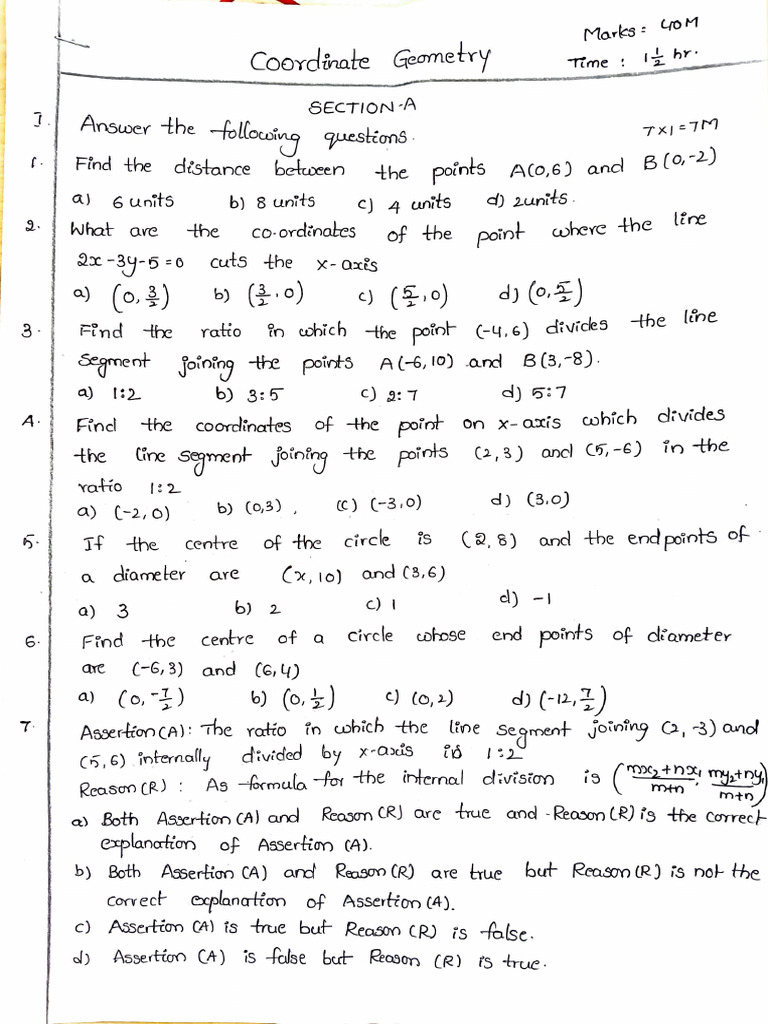 Marks: 40M
Coordinate Geometry
Time : 1 1/2 hr.
SECTION-A
I. Answer the following questions. 7x1=7M
1. Find the distance between the points A(0,6) and B(0,-2)
a) 6 units b) 8 units c) 4 units d) 2units.
2. What are the co-ordinates of the point where the line
2x-3y-5=0 cuts the x-axis
a) (0, 3/2) b) (3/2, 0) c) (5/2, 0) d) (0, 5/2)
3. Find the ratio in which the point (-4,6) divides the line
segment joining the points A(-6,10) and B(3,-8).
a) 1:2 b) 3:5 c) 2:7 d) 5:7
4. Find the coordinates of the point on x-axis which divides
the line segment joining the points (2,3) and (5,-6) in the
ratio 1:2
a) (-2,0) b) (0,3), (c) (-3,0) d) (3,0)
5. If the centre of the circle is (2,8) and the endpoints of
a diameter are (x,10) and (3,6)
a) 3 b) 2 c) 1 d) -1
6. Find the centre of a circle whose end points of diameter
are (-6,3) and (6,4)
a) (0, -7/2) b) (0, 1/2) c) (0,2) d) (-12, 7/2)
7. Assertion(A): The ratio in which the line segment joining (2,-3) and
(5,6) internally divided by x-axis is 1:2
Reason(R) : As formula for the internal division is (mx₂+nx₁/m+n, my₂+ny₁/m+n)
a) Both Assertion(A) and Reason(R) are true and Reason(R) is the correct
explanation of Assertion (A).
b) Both Assertion (A) and Reason (R) are true but Reason(R) is not the
correct explanation of Assertion (A).
c) Assertion (A) is true but Reason (R) is false.
d) Assertion (A) is false but Reason (R) is true.